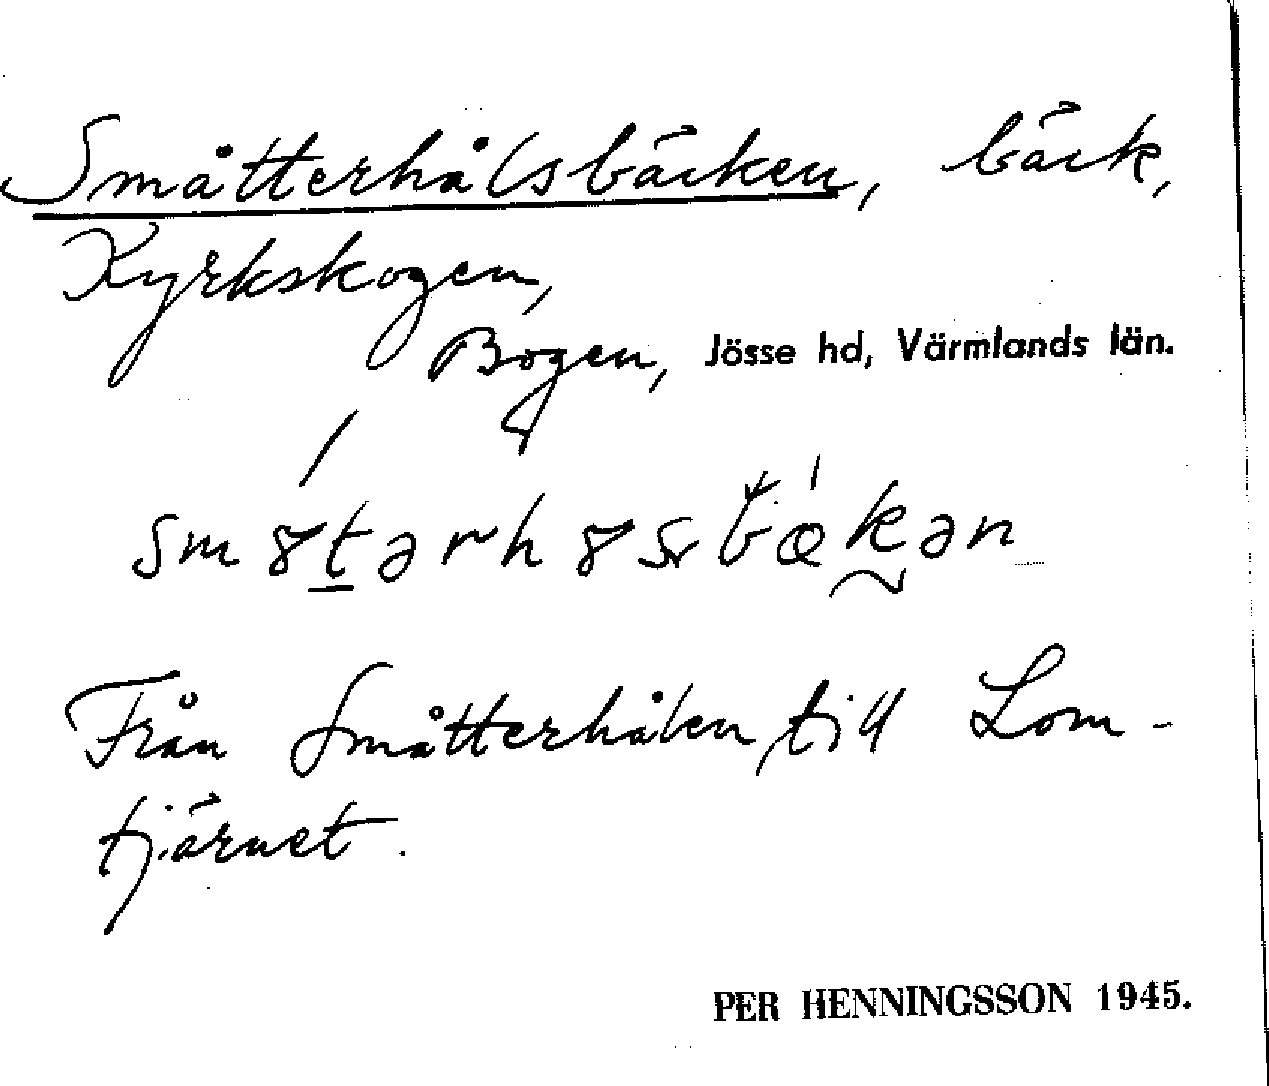 Småtterhålsbäcken, bäck,
Kyrkskogen,
Bogen, Jösse hd, Värmlands län.
Från Småtterhålen, till Lom-
tjärnet.
PER HENNINGSSON 1945.